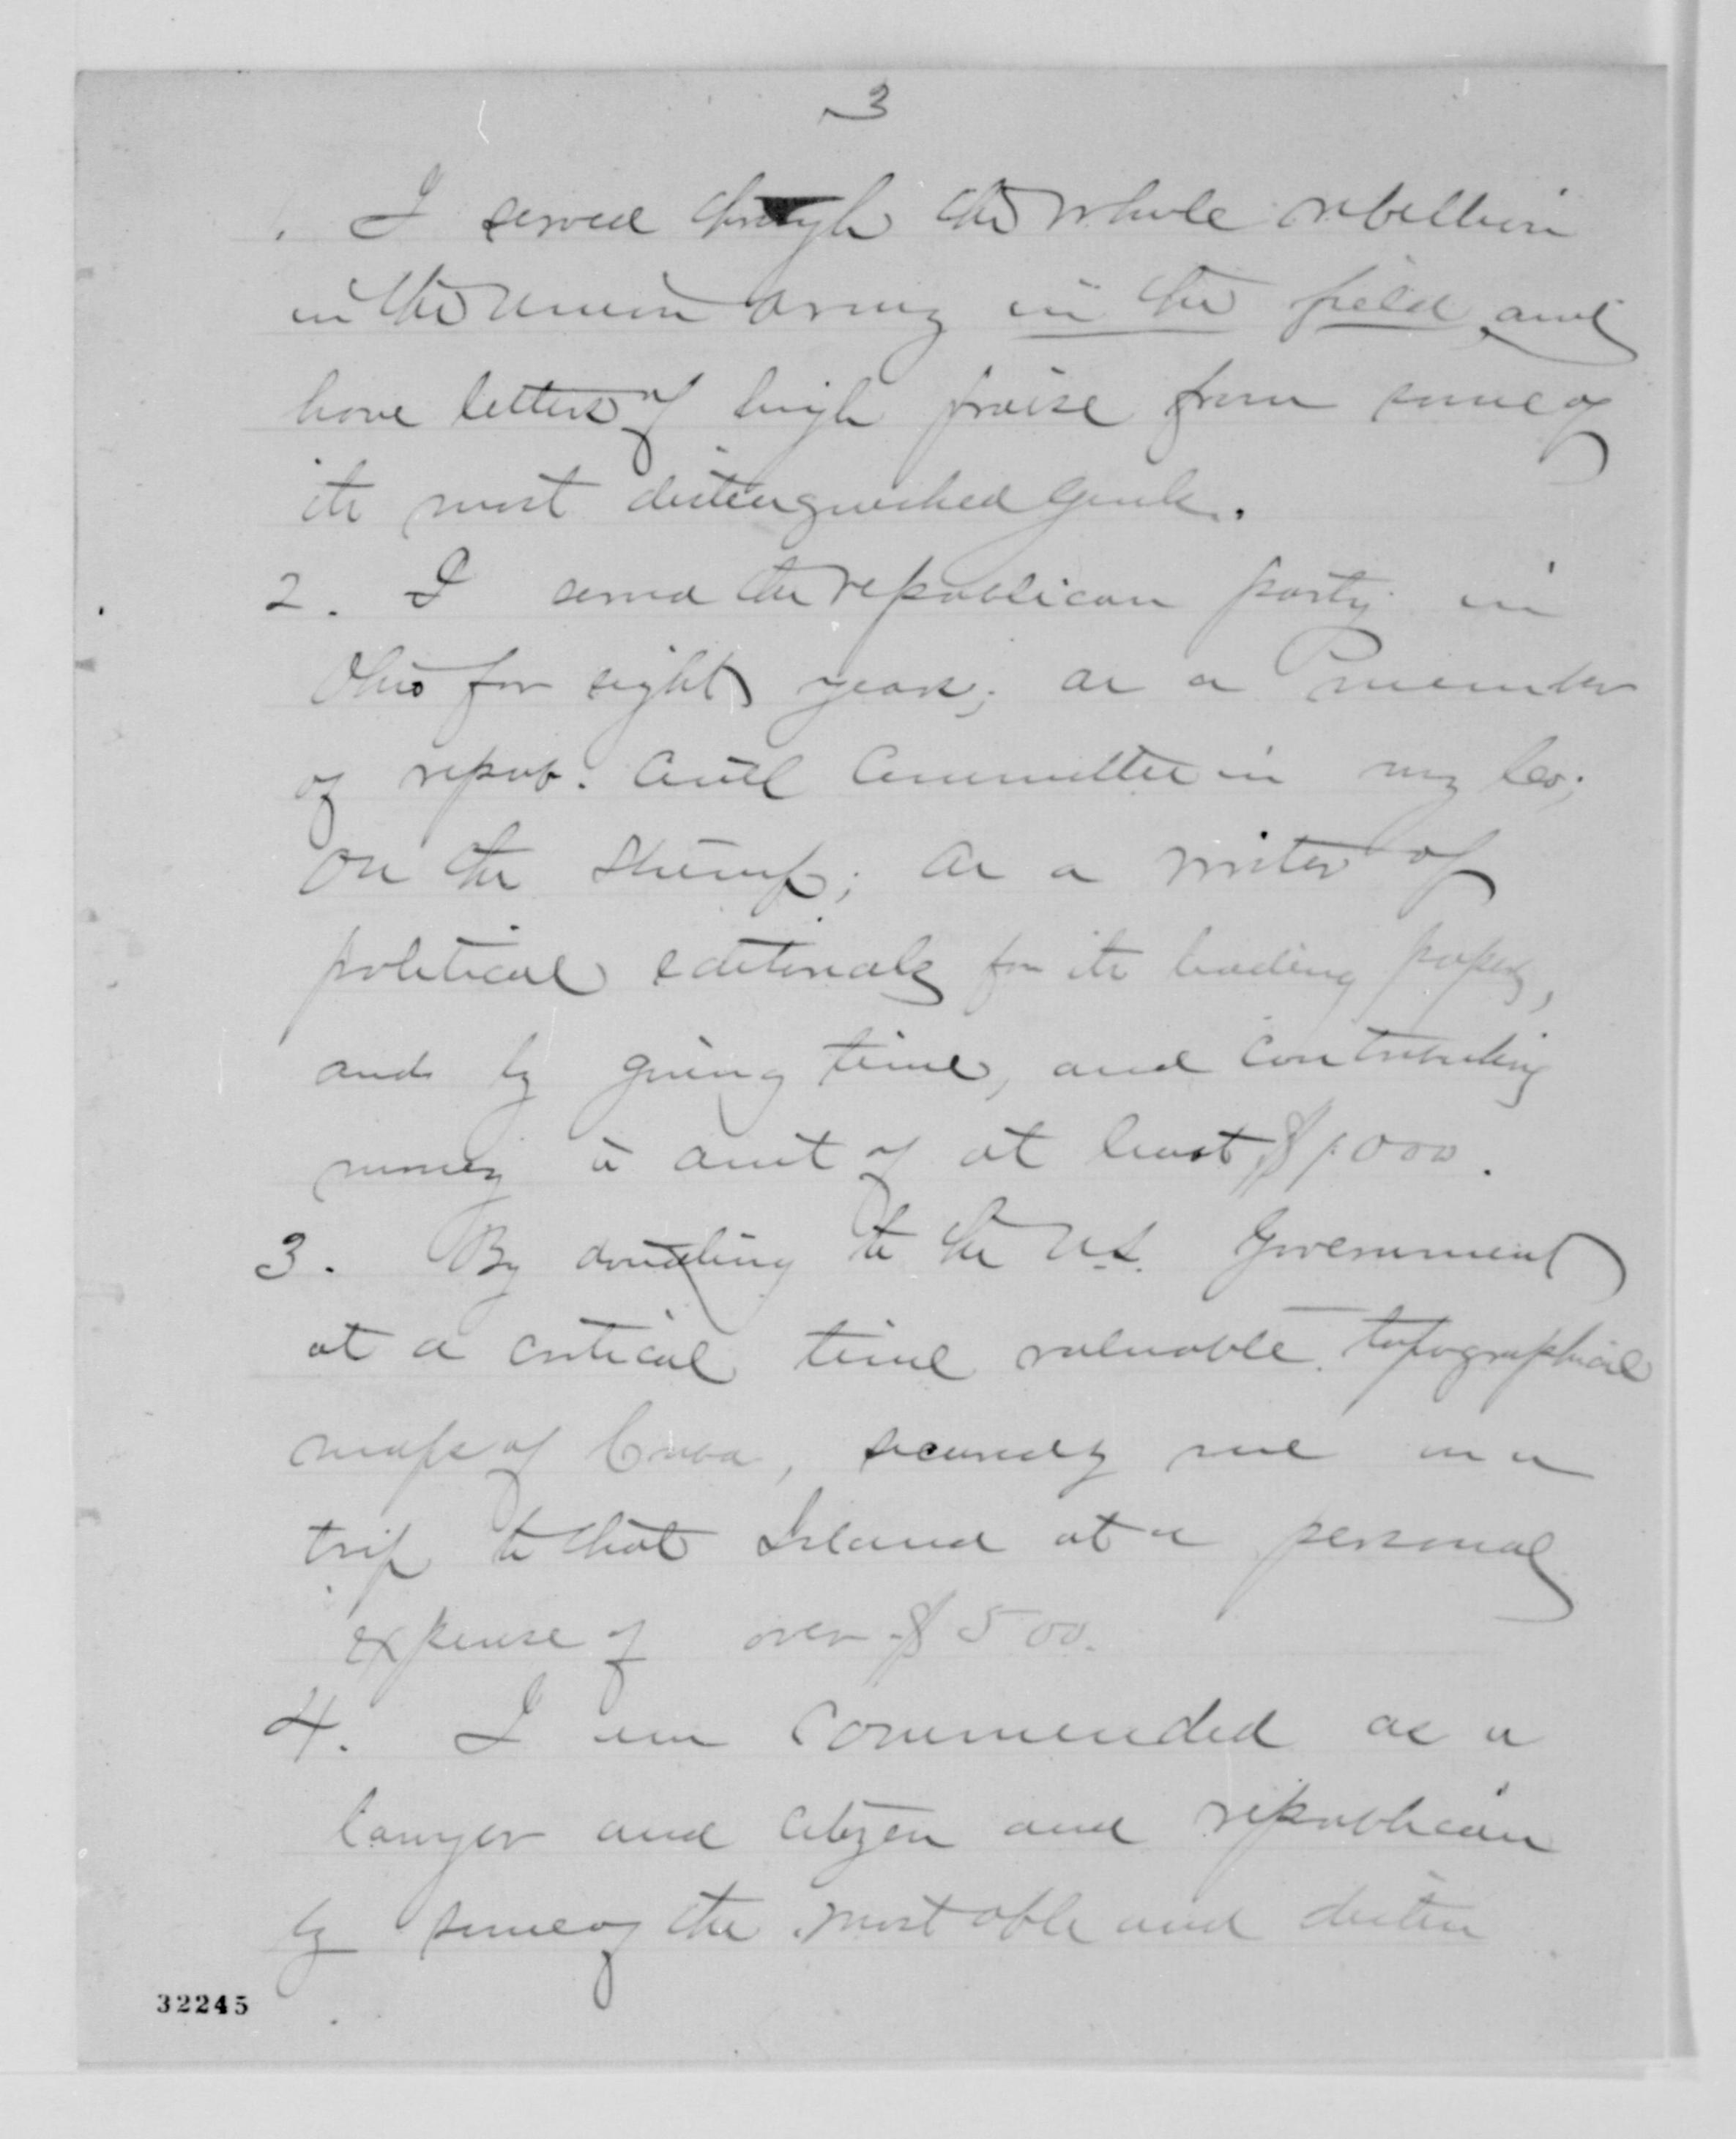 3
1. I served through the whole rebellion
in the Union Army in the field and
have letters of high praise from some of
its most distinguished Genls.
2. I served the republican party in
Ohio for eight years; as a member
of repub. Centl Committee in my Co;
on the stump; as a writer of
political editorials for its leading papers,
and by giving time, and contributing
money to amt of at least $1.000.
3. By donating to the U.S. Government
at a critical time valuable topographical
maps of Cuba, secured by me on a
trip to that Island at a personal
expense of over $500.
4. I am commended as a
lawyer and citizen and republican
by some of the most able and distin
32245